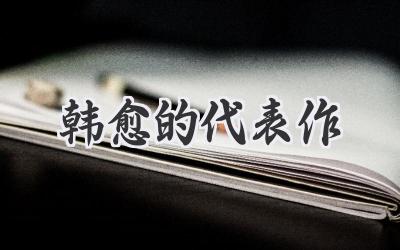 韩愈的代表作